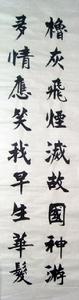 檣灰飛煙滅故國神游
多情應笑我早生華髮